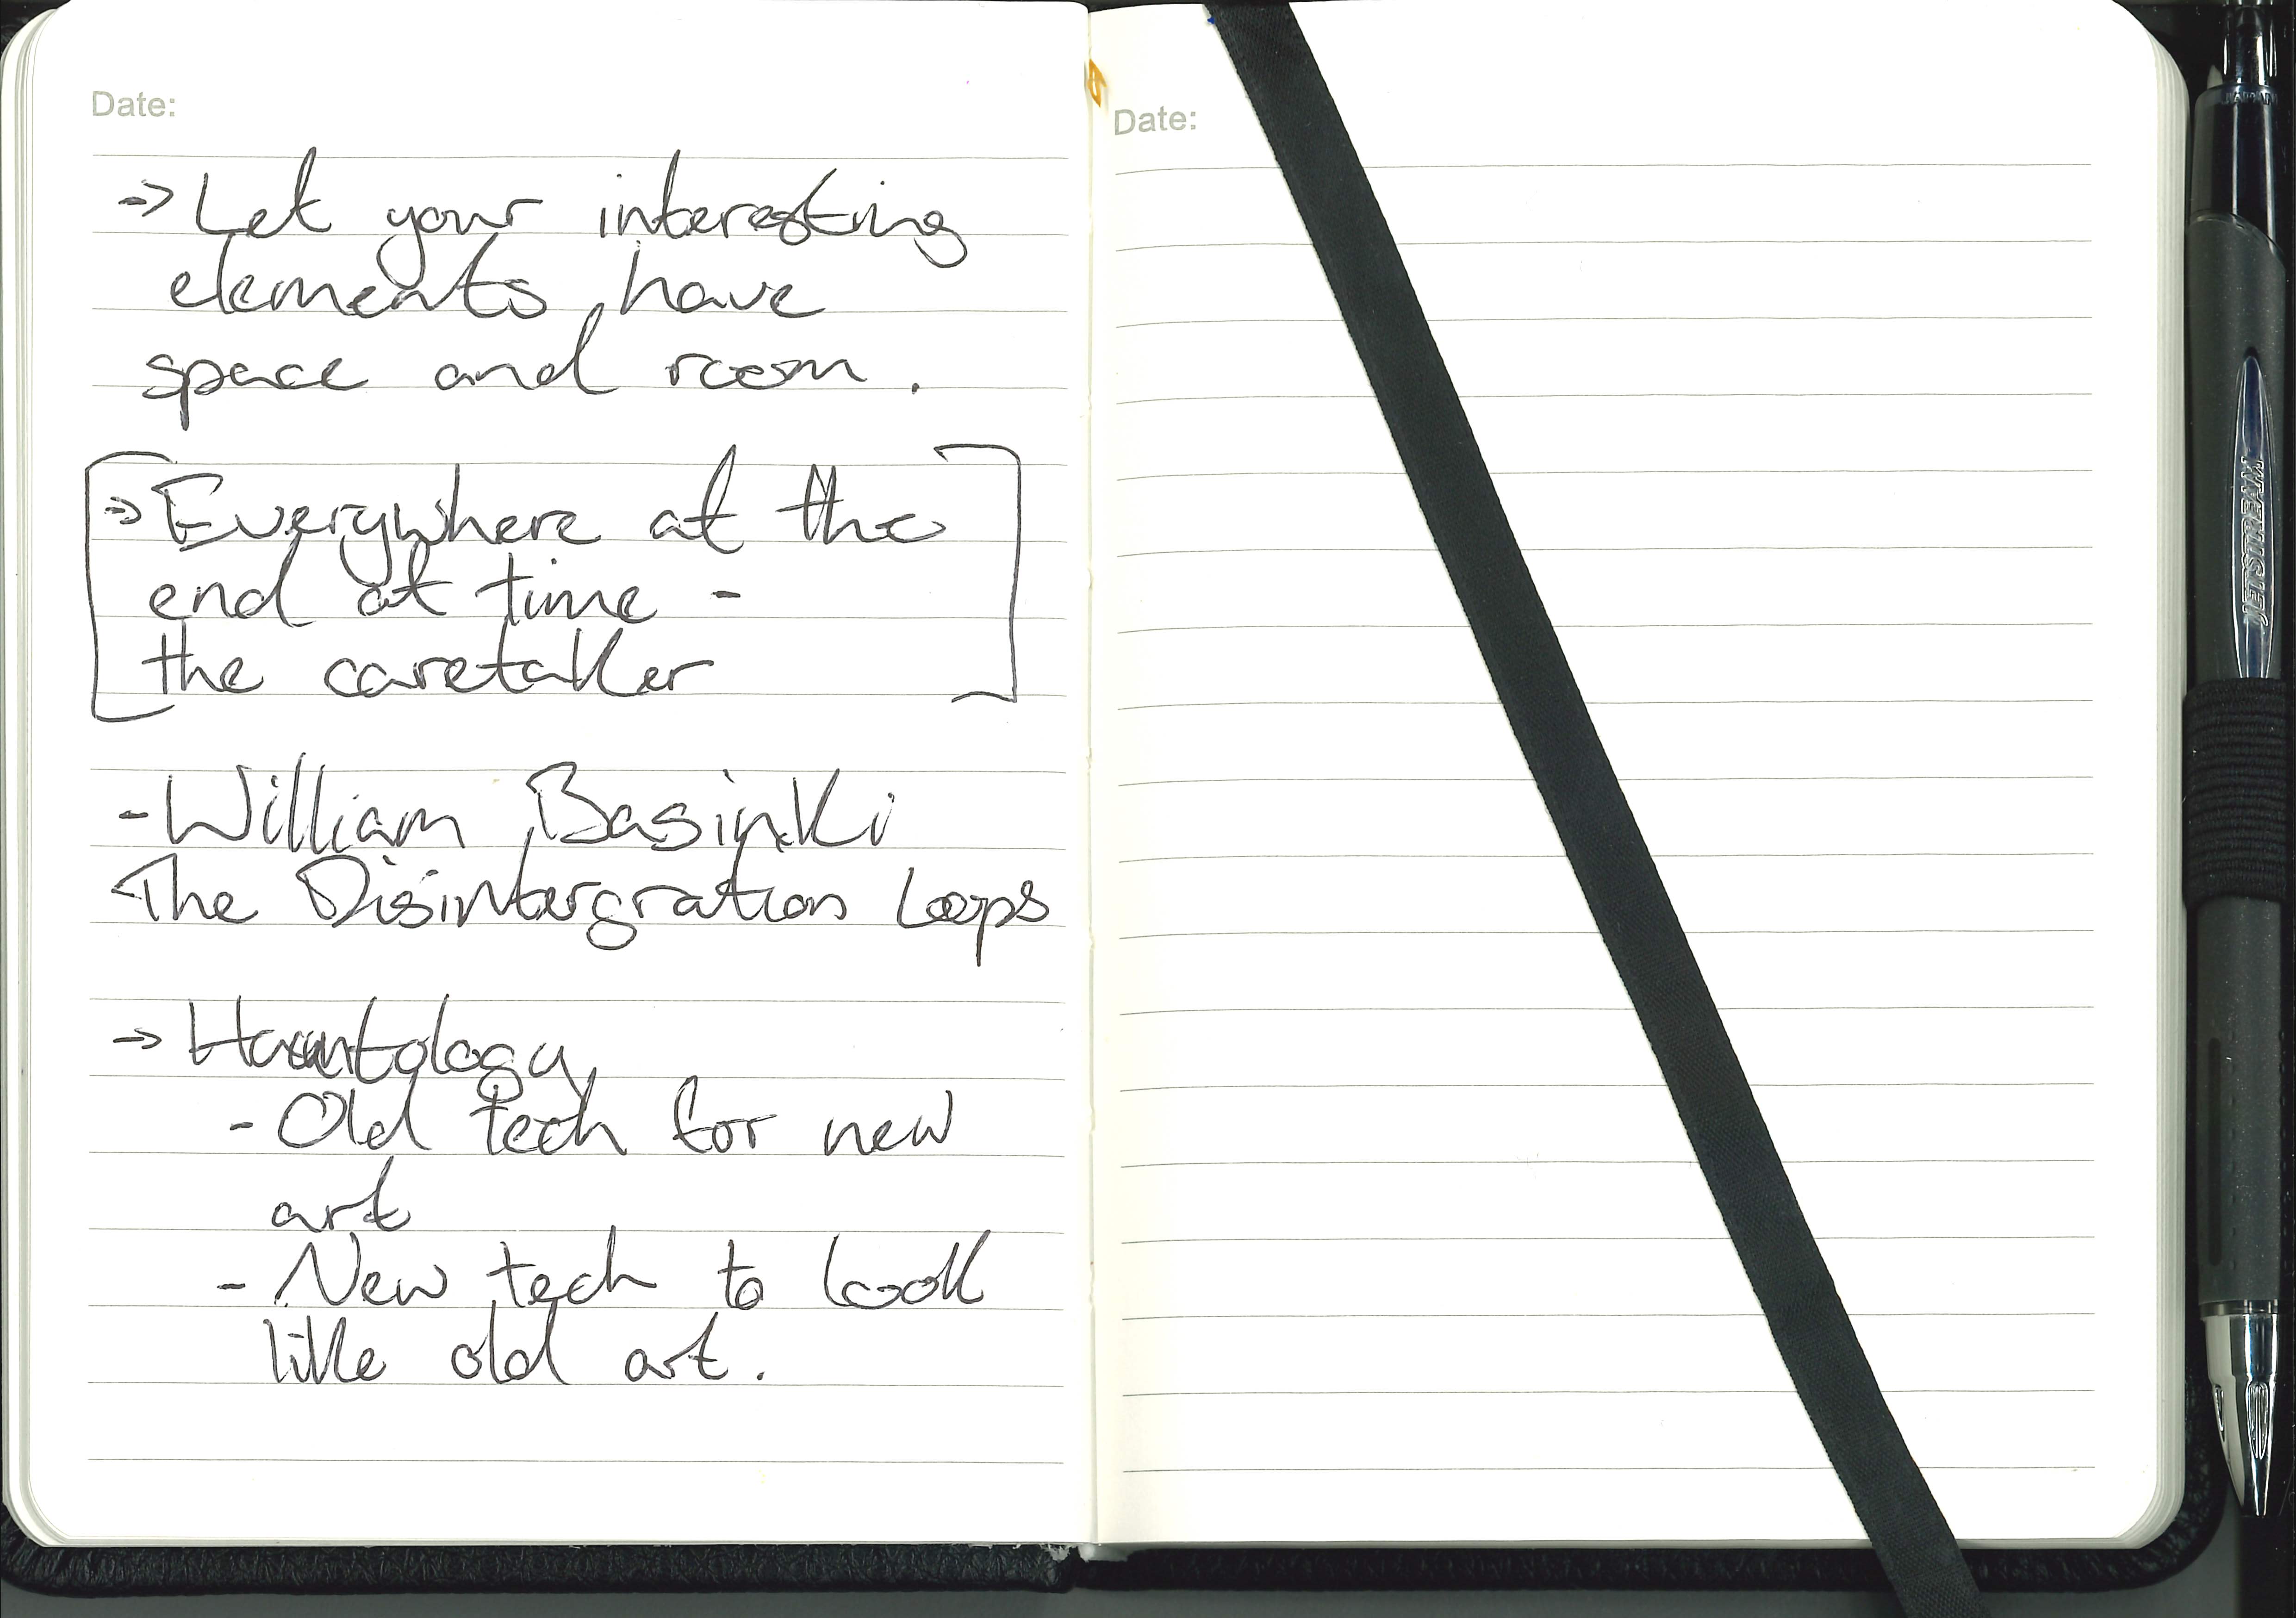 Date:
-> Let your interesting
elements have
space and room.
-> Everywhere at the
end at time -
the caretaker
- William Basinki
The Disintergration Loops
-> Hauntology
- Old tech for new
art
- New tech to look
like old art.
Date:
JETSTREAM